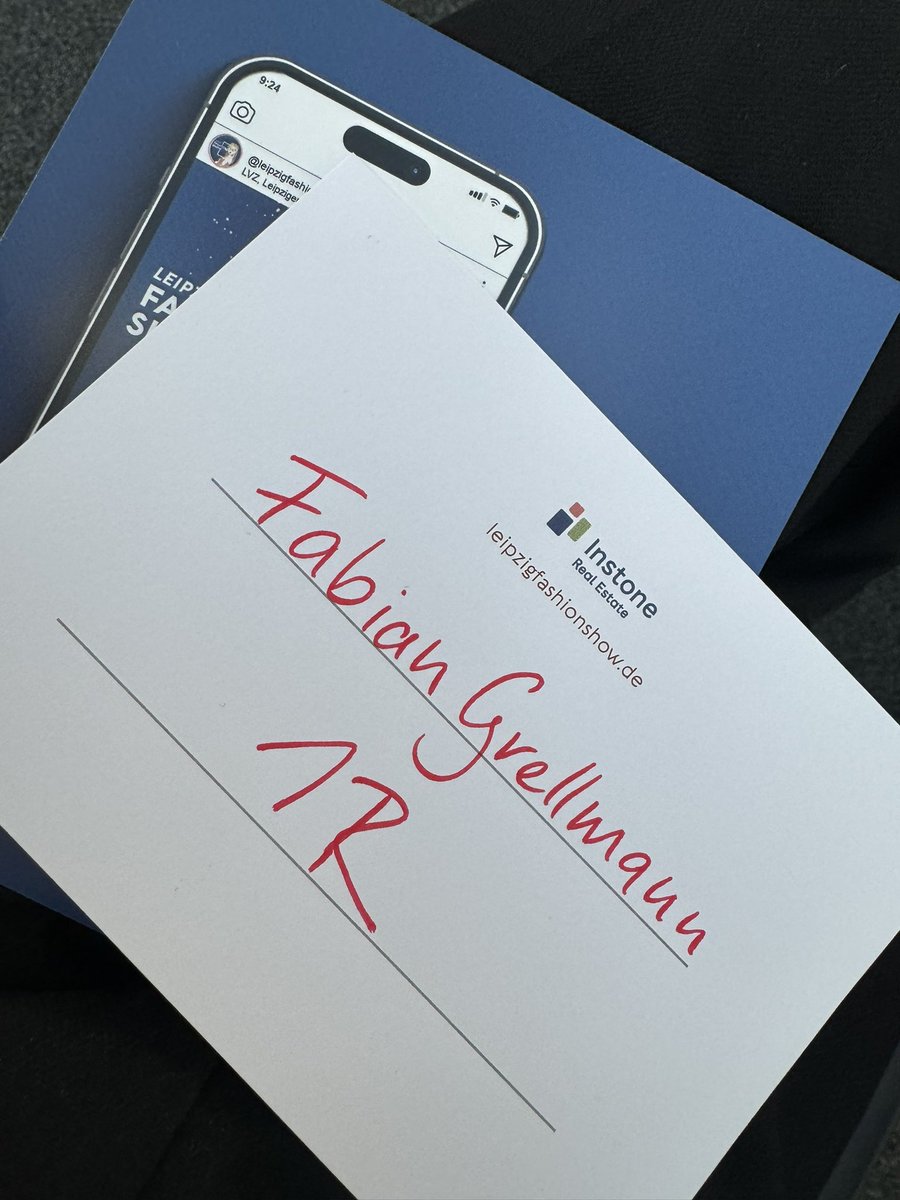 9:24
@leipzigfashi
LVZ, Leipzige
LEIPZ
FA
S
Instone
Real Estate
leipzigfashionshow.de
Fabian Grellmann
1R